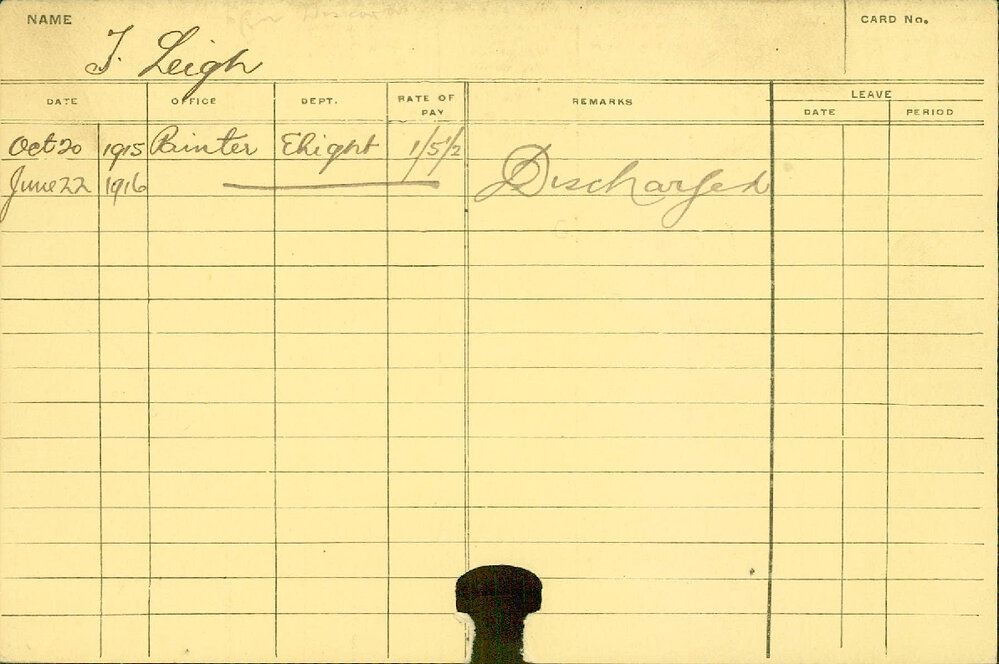 NAME
CARD No.
T. Leigh
DATE OFFICE DEPT. RATE OF PAY REMARKS LEAVE
DATE PERIOD
Oct 20 1915 Painter Ehight 1/5½ Discharged
June 22 1916